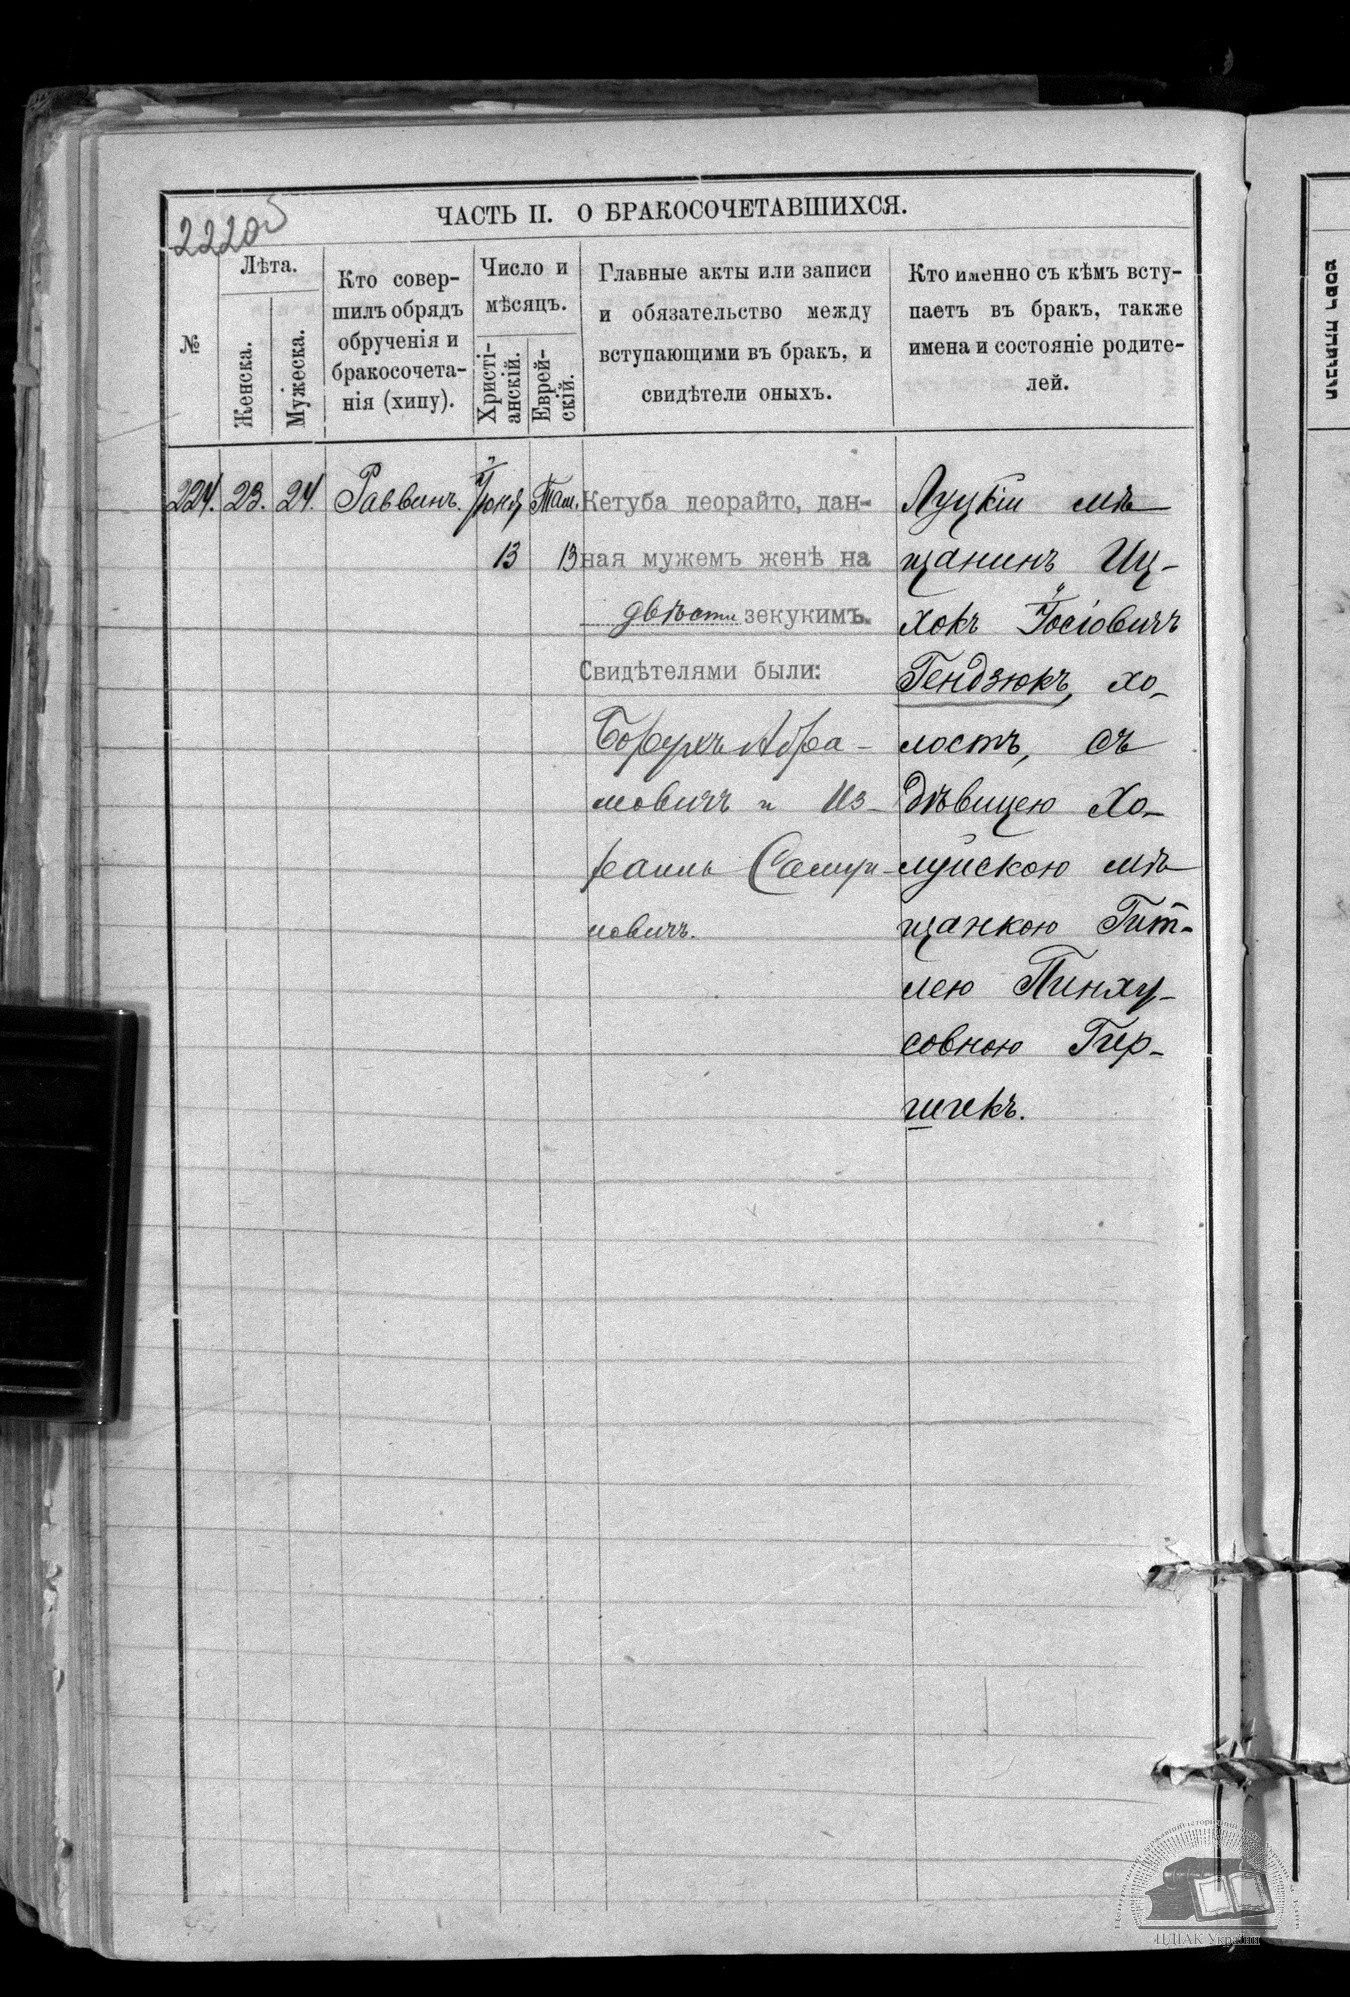 ЧАСТЬ II. О БРАКОСОЧЕТАВШИХСЯ.
№
Лѣта.
Женска.
Мужеска.
Кто совер-
шилъ обрядъ
обрученія и
бракосочета-
нія (хипу).
Число и
мѣсяцъ.
Христі-
анскій.
Еврей-
скій.
Главные акты или записи
и обязательство между
вступающими въ бракъ, и
свидѣтели оныхъ.
Кто именно съ кѣмъ всту-
паетъ въ бракъ, также
имена и состояніе родите-
лей.
224. 23. 24. Раввинъ. Іюня 13 Там. 13
Кетуба деорайто, дан-
ная мужемъ женѣ на
двѣсти зекукимъ.
Свидѣтелями были:
Борухъ Абра-
мовичъ и Из-
раиль Самуи-
ловичъ.
Луцкій мѣ-
щанинъ Иц-
хокъ Іосіовичъ
Гендзюкъ, хо-
лостъ, съ
дѣвицею Хо-
луйскою мѣ-
щанкою Гит-
лею Пинху-
совною Гер-
шчекъ.
ЦДІАК України